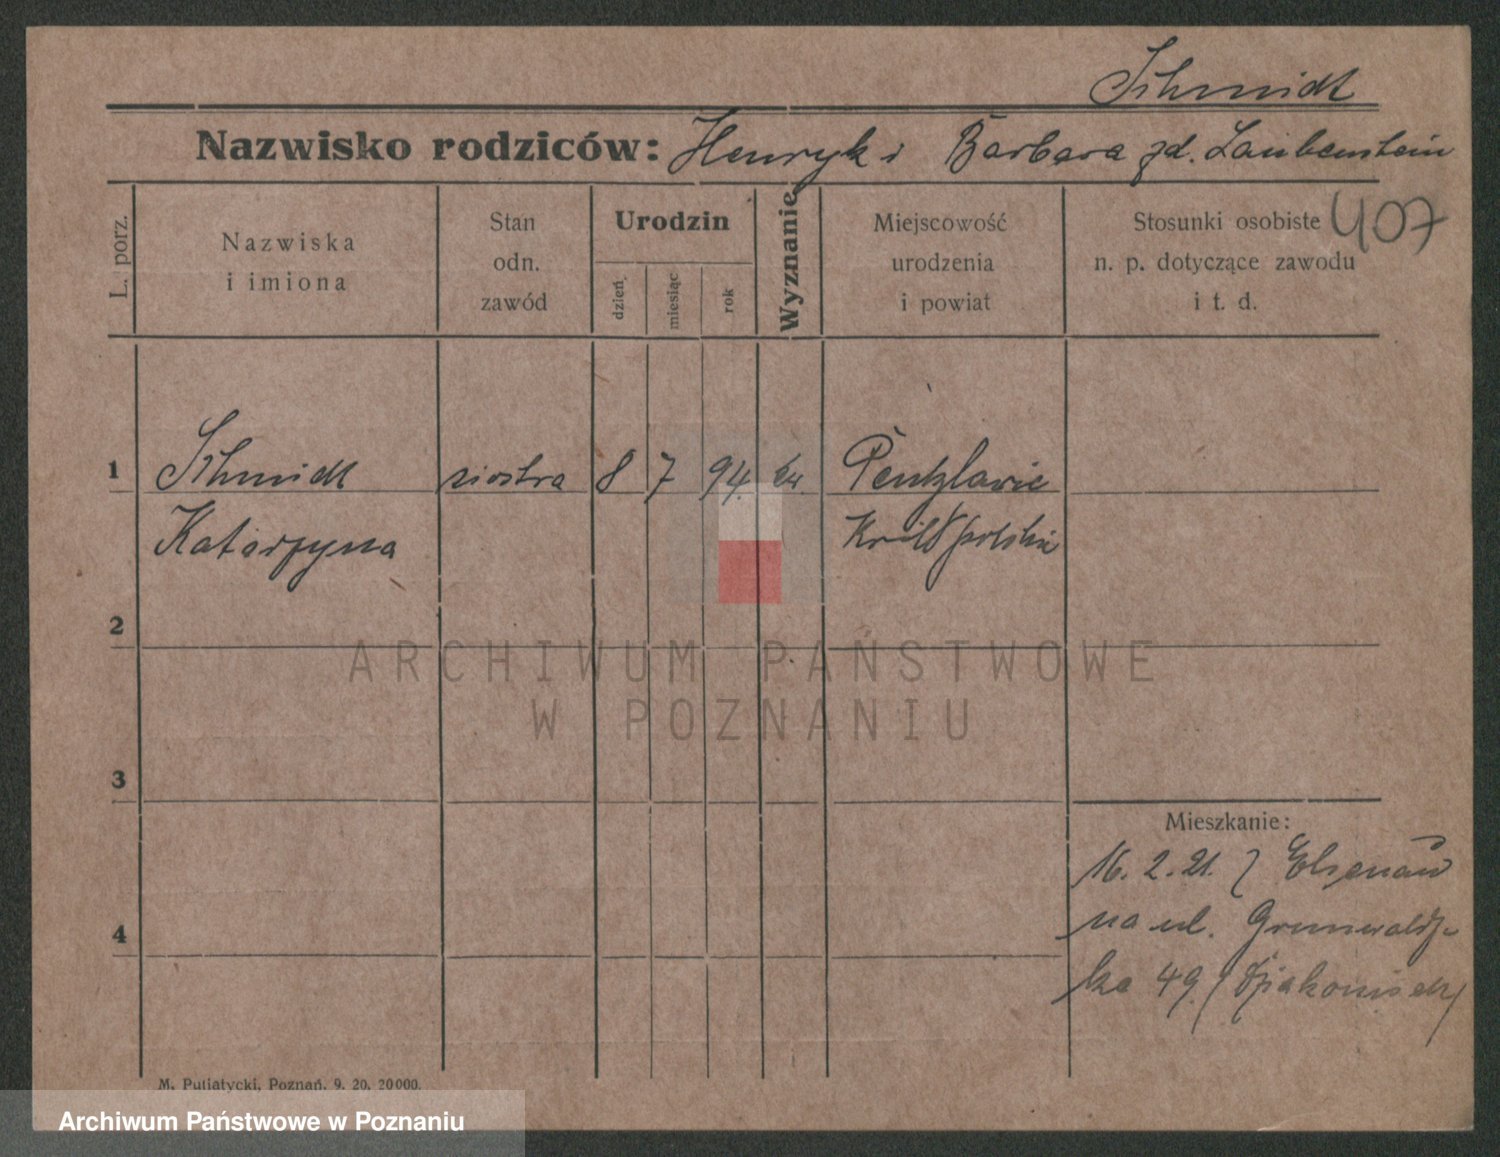 Schmidt
Nazwisko rodziców: Henryk i Barbara zd. Laubenstein
L. porz.
Nazwiska
i imiona
Stan
odn.
zawód
Urodzin
dzień.
miesiąc
rok
Wyznanie
Miejscowość
urodzenia
i powiat
Stosunki osobiste
n. p. dotyczące zawodu
i t. d.
407
1 Schmidt siostra 8 7 94. Ew.
Katarzyna
2
3
4
ARCHIWUM PAŃSTWOWE
W POZNANIU
Mieszkanie:
16. 2. 21. z Elsenau
na ul. Grunwaldz-
ka 49
M. Putiatycki, Poznań. 9. 20. 20000.
Archiwum Państwowe w Poznaniu